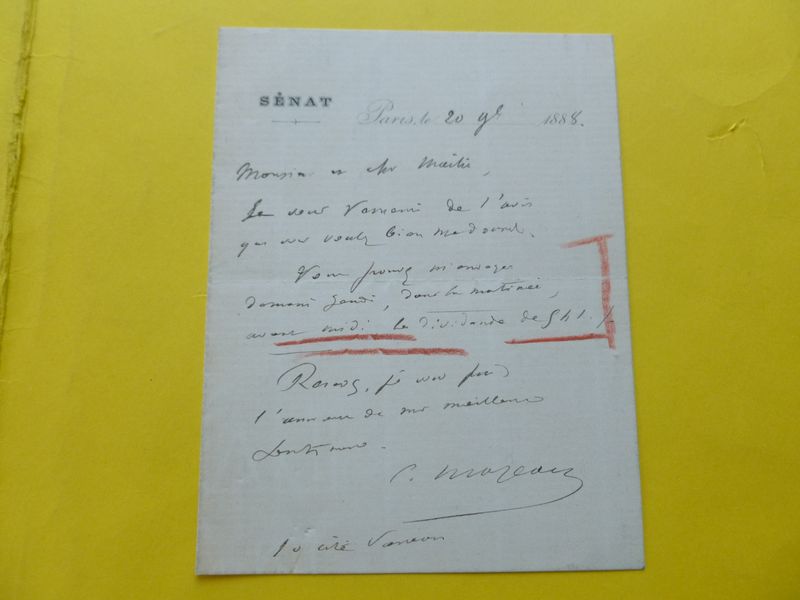 SÉNAT
Paris, le 20 9bre 1888.
Monsieur et cher Maître,
Je vous remercie de l'avis
que vous voulez bien me donner.
Vous pouvez m'envoyer
demain Jeudi, dans la matinée,
avant midi le dividende de
Recevez, je vous prie
l'assurance de mes meilleurs
sentiments.
C. Mazeau
10 cité Vaneau